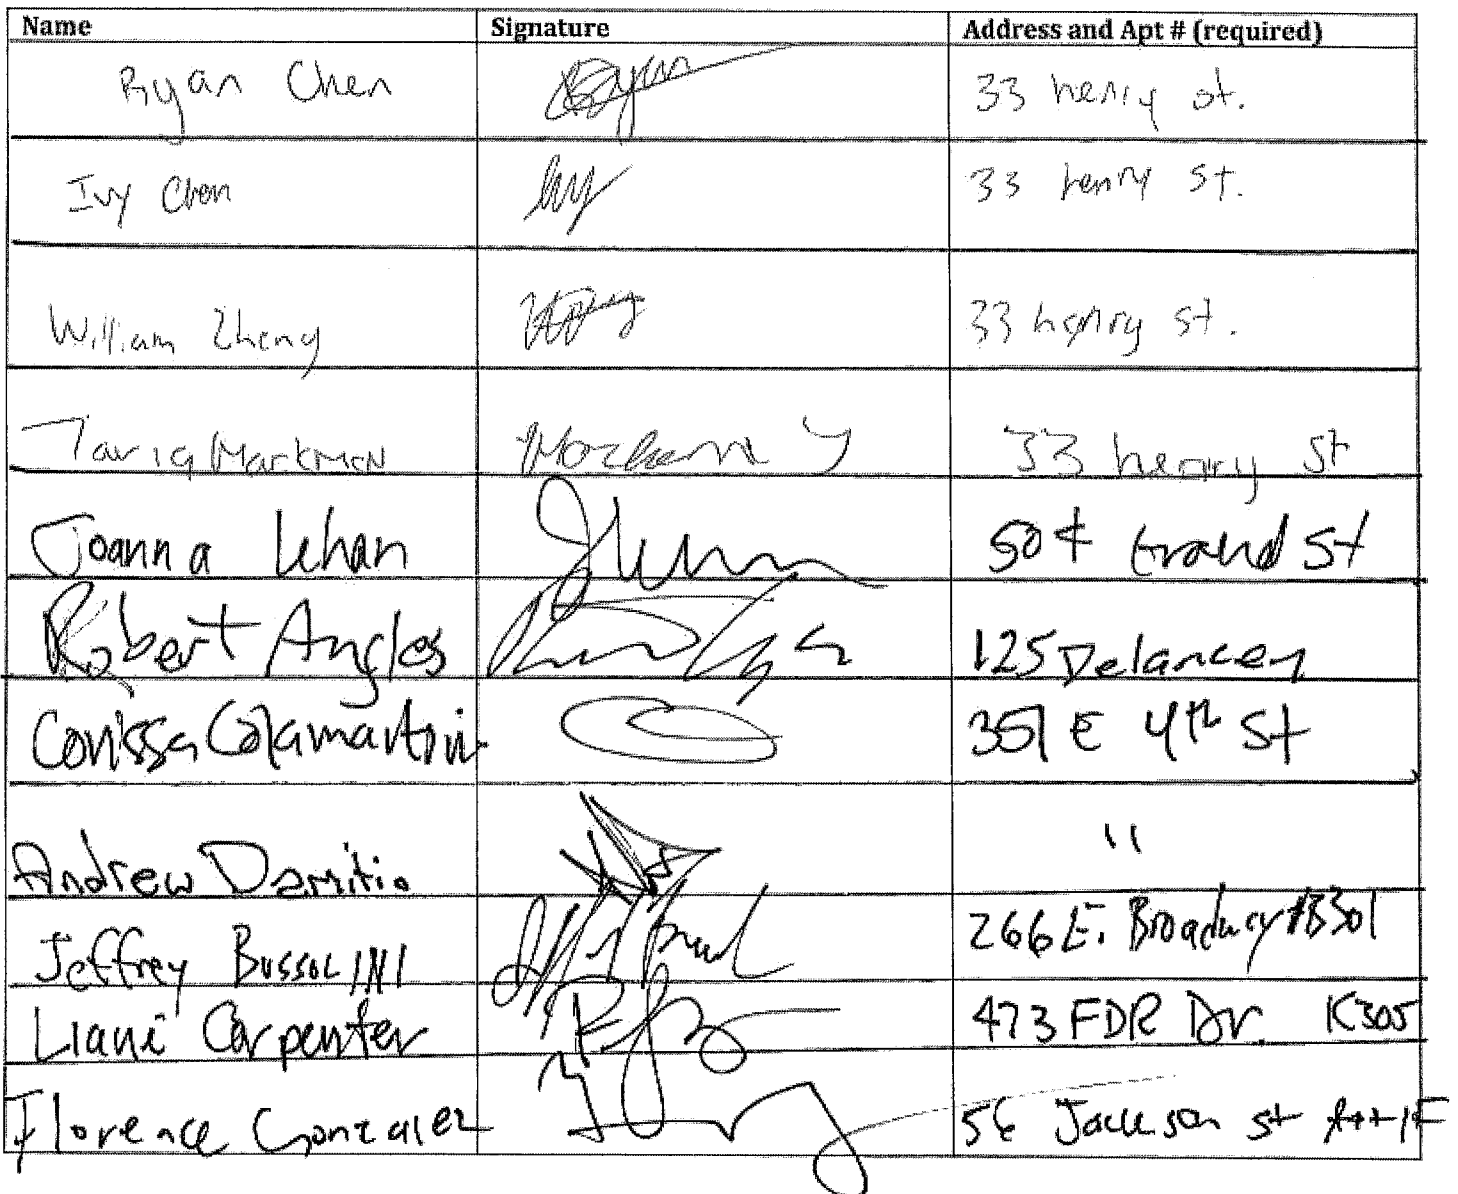 Name Signature Address and Apt # (required)
Ryan Chen Ryan 33 henry st.
Ivy Chen Ivy 33 henry st.
William Zheng 33 henry st.
Markman 33 henry st
Joanna Lehan 504 Grand St
Robert Angles 125 Delancey
Corissa Colamartini 357 E 4th St
Andrew Damitio "
Jeffrey Bussolini 266 E. Broadway #B301
Liani Carpenter 473 FDR Dr. K305
Florence Gonzalez 56 Jackson St Apt 1F